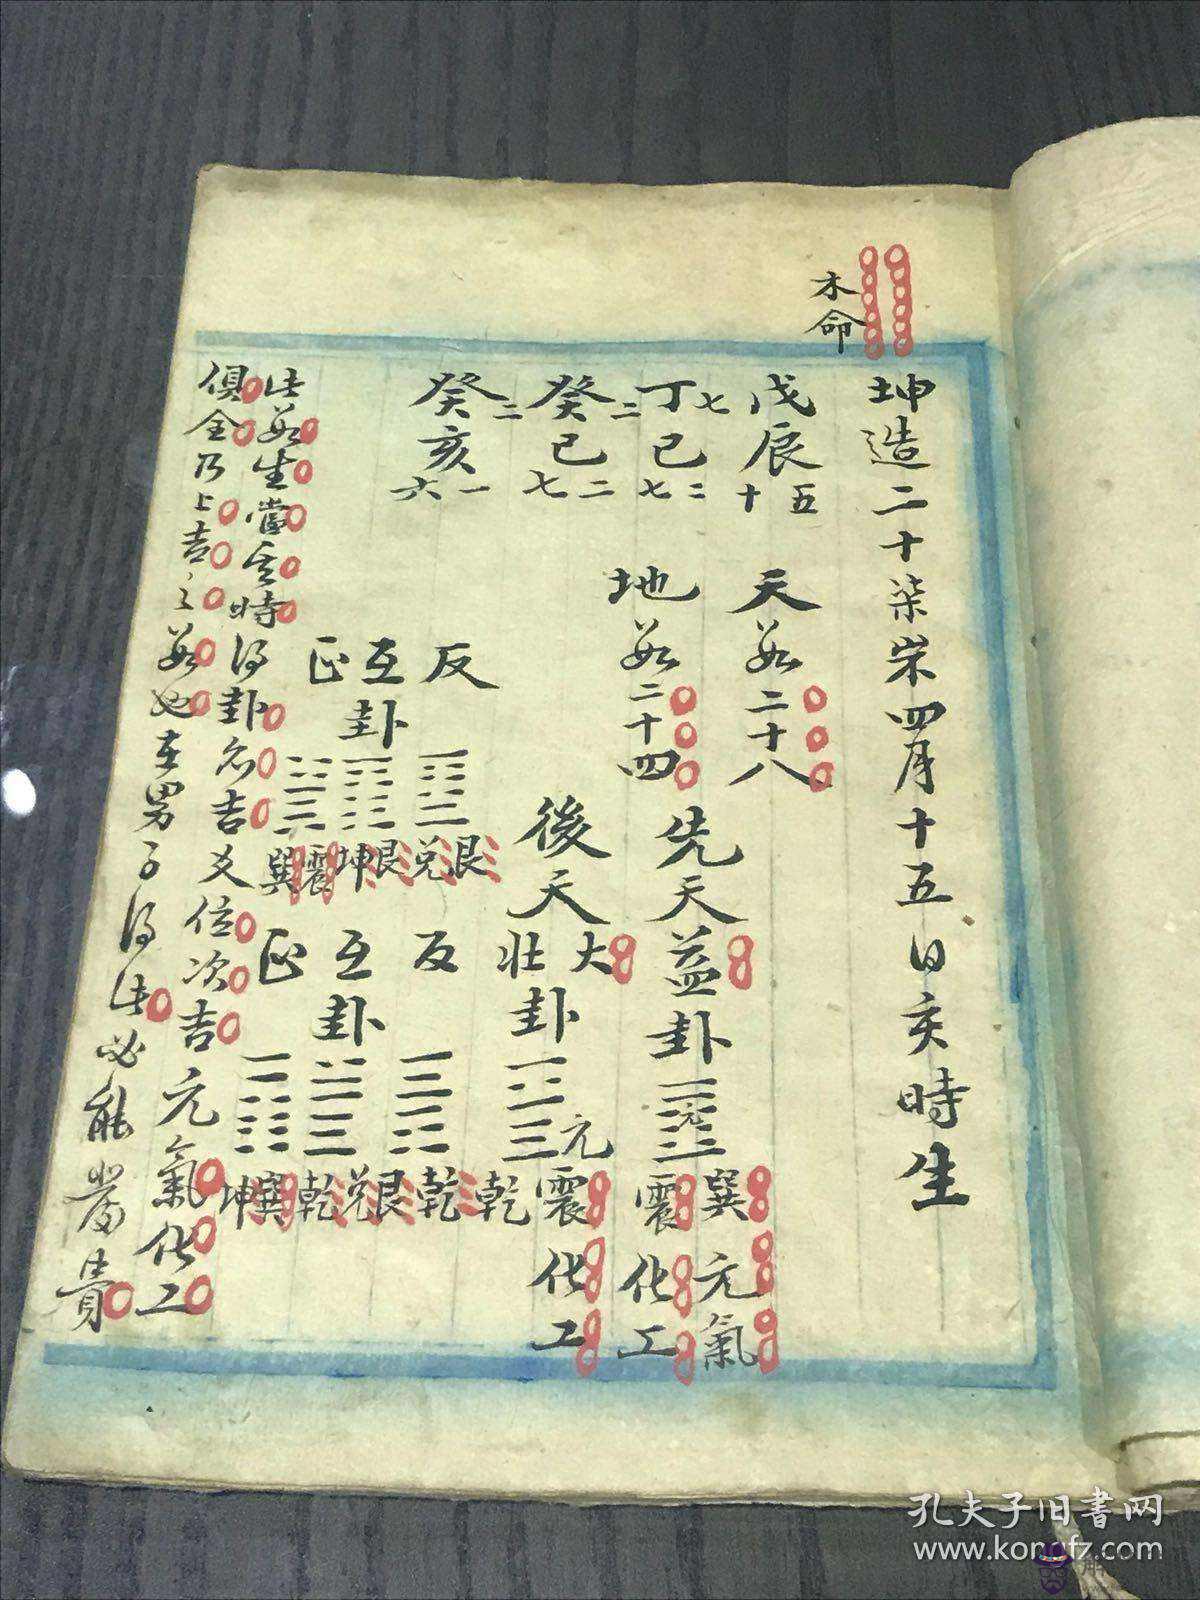 木命
坤造二十柒岁四月十五日亥時生
戊辰 八 十五
丁巳 七 七二
癸巳 二 七二
癸亥 二 六一
天数二十八
地数二十四
先天益卦 元 巽震 元氣 化工
後天大壯卦 元 震乾 化工
反 艮兌
互卦 艮坤
正 震巽
反 乾
互卦 艮兌乾
正 巽坤
此数生當其時得卦名吉爻位次吉元氣化工
俱全乃上吉之数也在男子得此必能發貴
孔夫子旧書网
www.kongfz.com